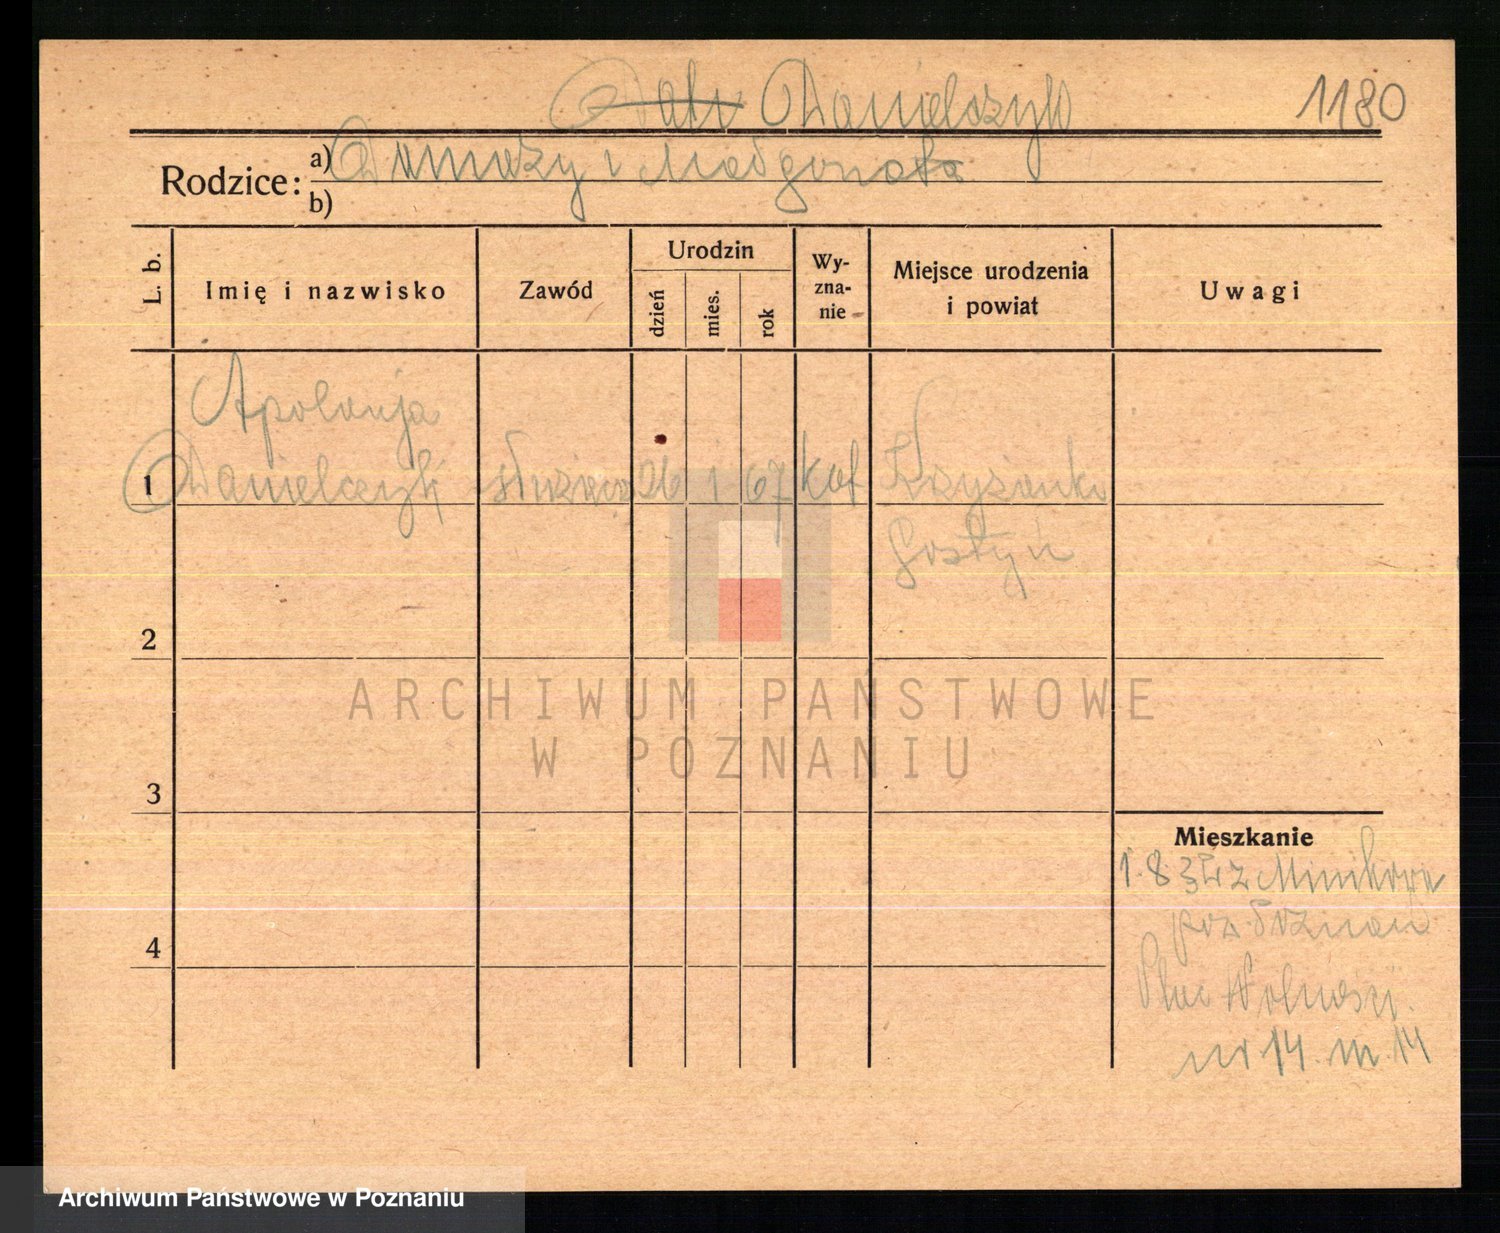 Danielczyk 1180
Rodzice: a) Damazy i Małgorzata
b)
L. b. Imię i nazwisko Zawód Urodzin dzień mies. rok Wy-zna-nie Miejsce urodzenia i powiat Uwagi
Apolonja
1 Danielczyk służąca 26 1 67 kat Krzyżanki
Gostyń
2
3
Mieszkanie
1.8.32 z Minikowa
pow. Poznań
4
Plac Wolności
nr 14. m. 14
ARCHIWUM PAŃSTWOWE
W POZNANIU
Archiwum Państwowe w Poznaniu